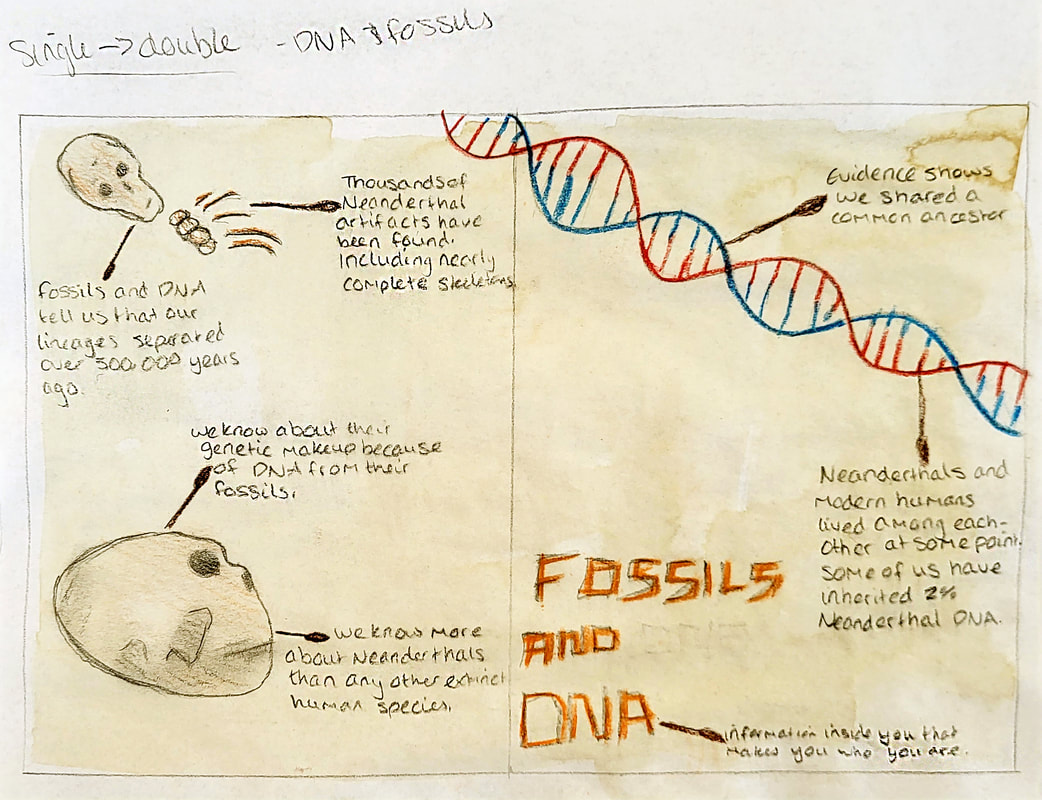 Single → double - DNA & fossils
Thousands of
Neanderthal
artifacts have
been found.
Including nearly
complete skeletons.
Evidence shows
we shared a
common ancestor
fossils and DNA
tell us that our
lineages separated
over 500,000 years
ago.
we know about their
genetic makeup because
of DNA from their
fossils.
Neanderthals and
modern humans
lived among each-
other at some point.
some of us have
inherited 2%
Neanderthal DNA.
we know more
about Neanderthals
than any other extinct
human species.
FOSSILS
AND
DNA
information inside you that
makes you who you are.